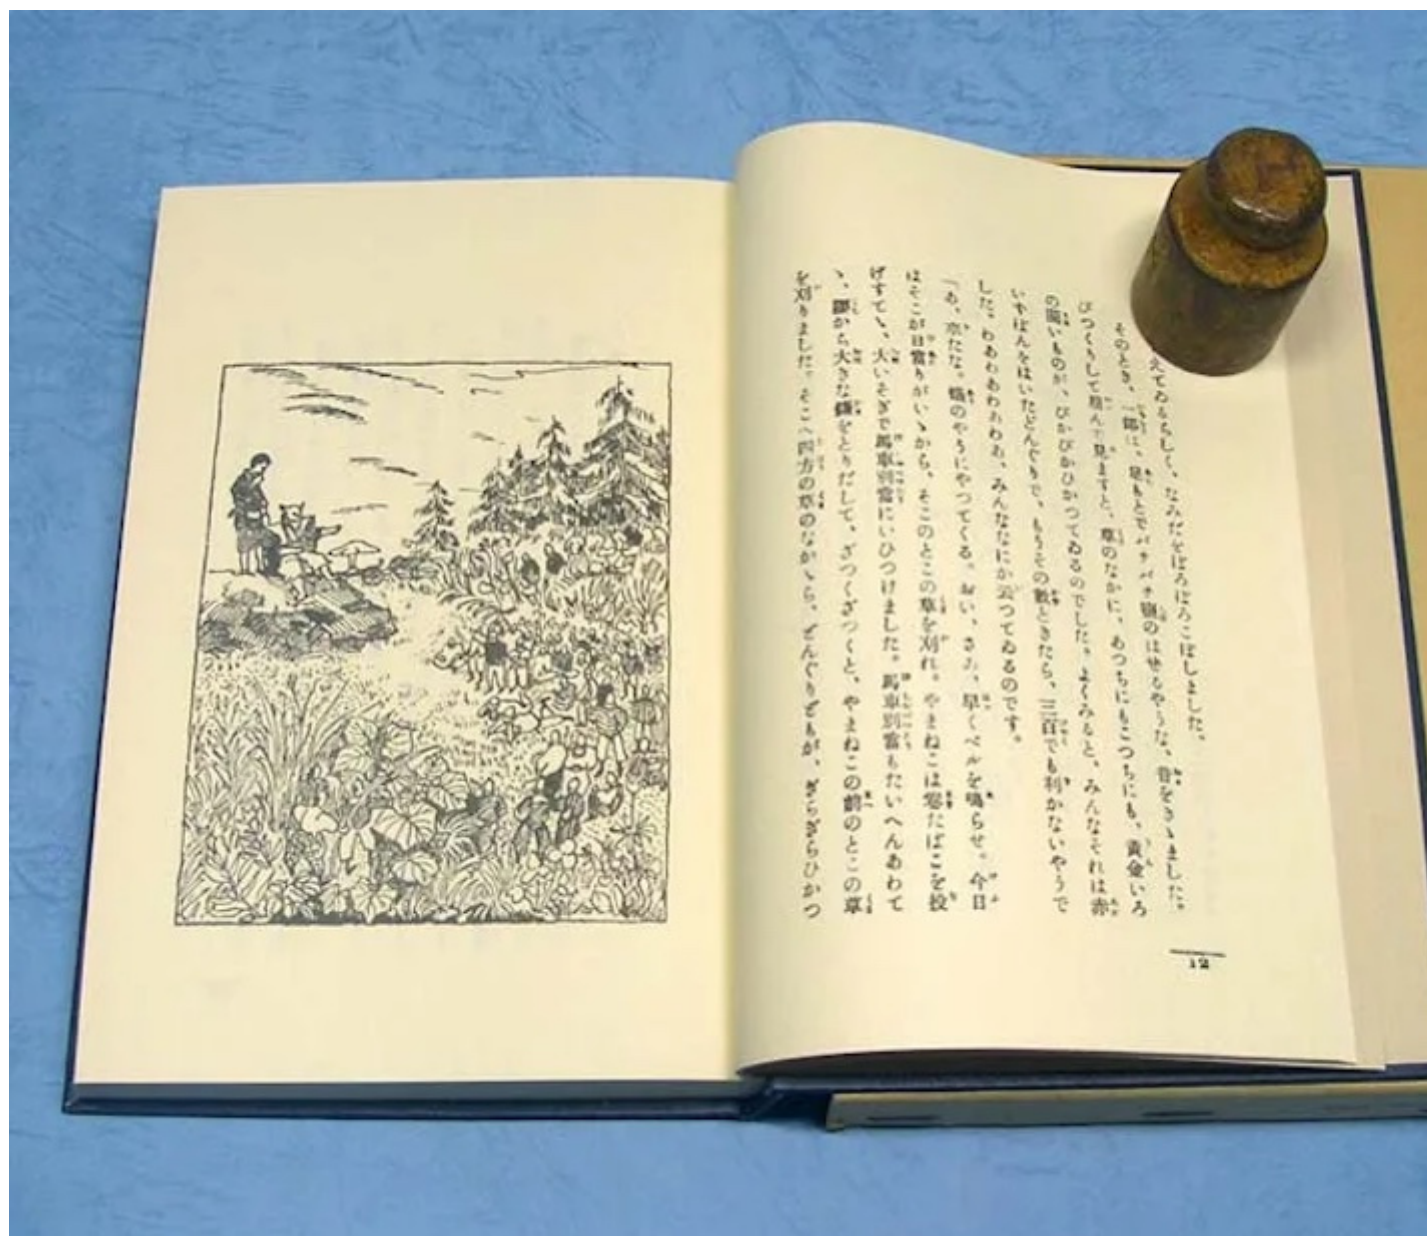 えてゐるらしく、なみだをぼろぼろこぼしました。
そのとき、一郎は、足もとでパチパチ塩のはぜるやうな、音をきゝました。
びつくりして屈んで見ますと、草のなかに、あつちにもこつちにも、黄金いろ
の円いものが、ぴかぴかひかつてゐるのでした。よくみると、みんなそれは赤
いずぼんをはいたどんぐりで、もうその数ときたら、三百でも利かないやうで
した。わあわあわあわあ、みんななにか云つてゐるのです。
「あ、来たな。蟻のやうにやつてくる。おい、さあ、早くベルを鳴らせ。今日
はそこが日当りがいゝから、そこのとこの草を刈れ。やまねこは巻たばこを投
げすてゝ、大いそぎで馬車別当にいひつけました。馬車別当もたいへんあわて
ゝ、腰から大きな鎌をとりだして、ざつくざつくと、やまねこの前のとこの草
を刈りました。そこへ四方の草のなかゝら、どんぐりどもが、ぎらぎらひかつ
12